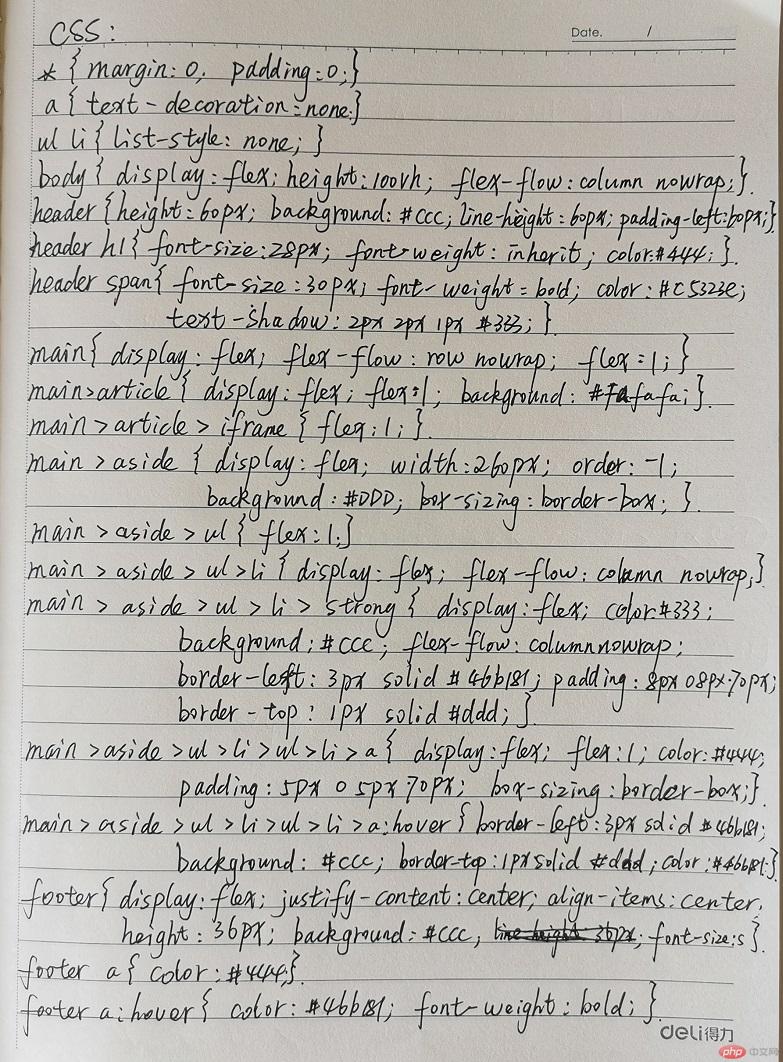 CSS:
Date. /
* { margin: 0, padding: 0; }
a { text-decoration: none; }
ul li { list-style: none; }
body { display: flex; height: 100vh; flex-flow: column nowrap; }.
header { height: 60px; background: #ccc; line-height: 60px; padding-left: 60px; }
header h1 { font-size: 28px; font-weight: inherit; color: #444; }.
header span { font-size: 30px; font-weight: bold; color: #c5323e;
text-shadow: 2px 2px 1px #333; }.
main { display: flex; flex-flow: row nowrap; flex: 1; }
main > article { display: flex; flex: 1; background: #fafafa; }.
main > article > iframe { flex: 1; }.
main > aside { display: flex; width: 260px; order: -1;
background: #DDD; box-sizing: border-box; }.
main > aside > ul { flex: 1; }
main > aside > ul > li { display: flex; flex-flow: column nowrap; }
main > aside > ul > li > strong { display: flex; color: #333;
background: #ccc; flex-flow: column nowrap;
border-left: 3px solid #46b181; padding: 8px 0 8px 70px;
border-top: 1px solid #ddd; }.
main > aside > ul > li > ul > li > a { display: flex; flex: 1; color: #444;
padding: 5px 0 5px 70px; box-sizing: border-box; }.
main > aside > ul > li > ul > li > a:hover { border-left: 3px solid #46b181;
background: #ccc; border-top: 1px solid #ddd; color: #46b181; }
footer { display: flex; justify-content: center; align-items: center,
height: 36px; background: #ccc, line-height: 36px; font-size: s }.
footer a { color: #444; }.
footer a:hover { color: #46b181; font-weight: bold; }.
deli得力
php 中文网